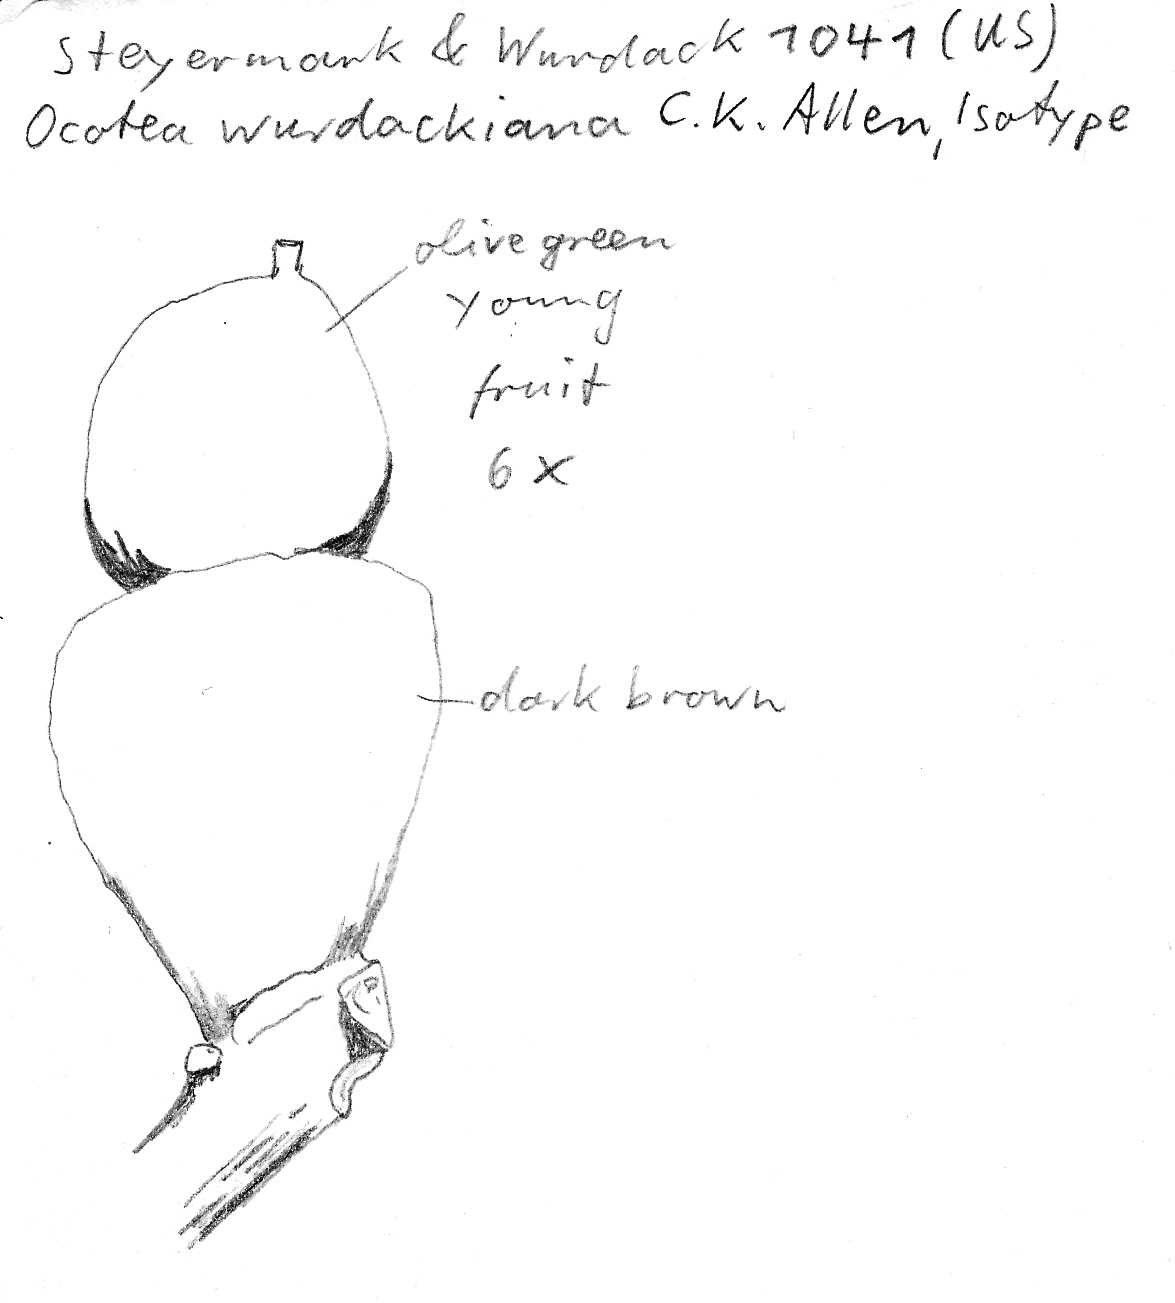 Steyermark & Wurdack 1041 (US)
Ocotea wurdackiana C.K. Allen, Isotype
olive green
young
fruit
6 x
dark brown